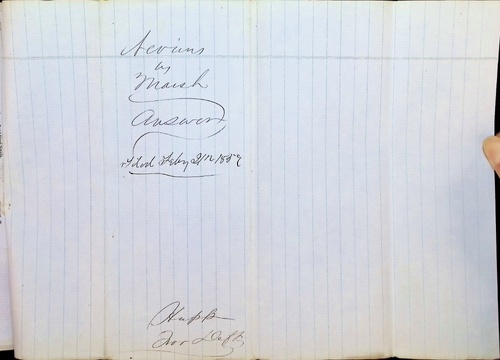 Nevins
vs
Marsh
Answer
Filed Feby 21st 1859
Hupp
For Deft